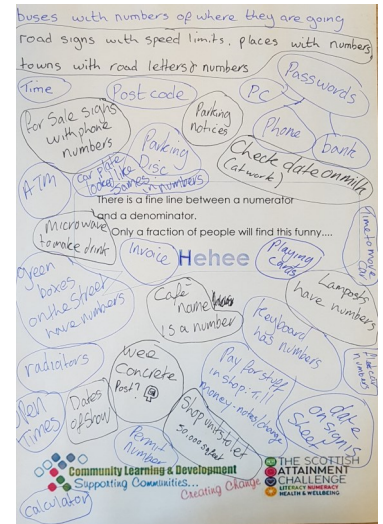 buses with numbers of where they are going
road signs with speed limits, places with numbers,
towns with road letters & numbers
Time
Postcode
PC
Passwords
For Sale signs
with phone
numbers
Parking
notices
Parking
Disc
Phone
bank
Check date on milk
(at work)
ATM
car plate
looks like
names
in numbers
There is a fine line between a numerator
and a denominator.
Only a fraction of people will find this funny....
Hehee
Microwave
to make drink
Invoice
Playing
cards
Time to move
car
Green
boxes
on the street
have numbers
Café
name
is a number
Lamposts
have numbers
Keyboard
has numbers
radiators
wee
concrete
Post?
Pay for stuff
in shop. Till
money - notes/change
numbers
Open
Times
Dates
of show
Shop units to let
50,000 sq feet
date
on sign in
sheet
Permit
number
Community Learning & Development
Supporting Communities...
Creating Change
THE SCOTTISH
ATTAINMENT
CHALLENGE
LITERACY NUMERACY
HEALTH & WELLBEING
calculator